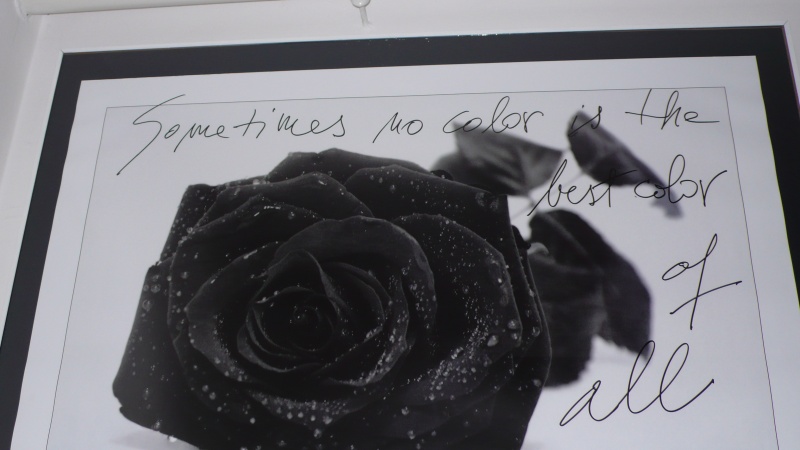 Sometimes no color is the
best color
of
all